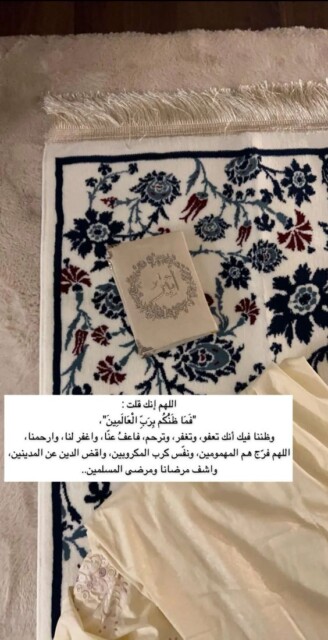 اللهم إنك قلت :
"فَمَا ظَنُّكُم بِرَبِّ الْعَالَمِينَ"،
وظننا فيك أنك تعفو، وتغفر، وترحم، فاعفُ عنّا، واغفر لنا، وارحمنا،
اللهم فرّج هم المهمومين، ونفّس كرب المكروبين، واقض الدين عن المدينين،
واشف مرضانا ومرضى المسلمين..